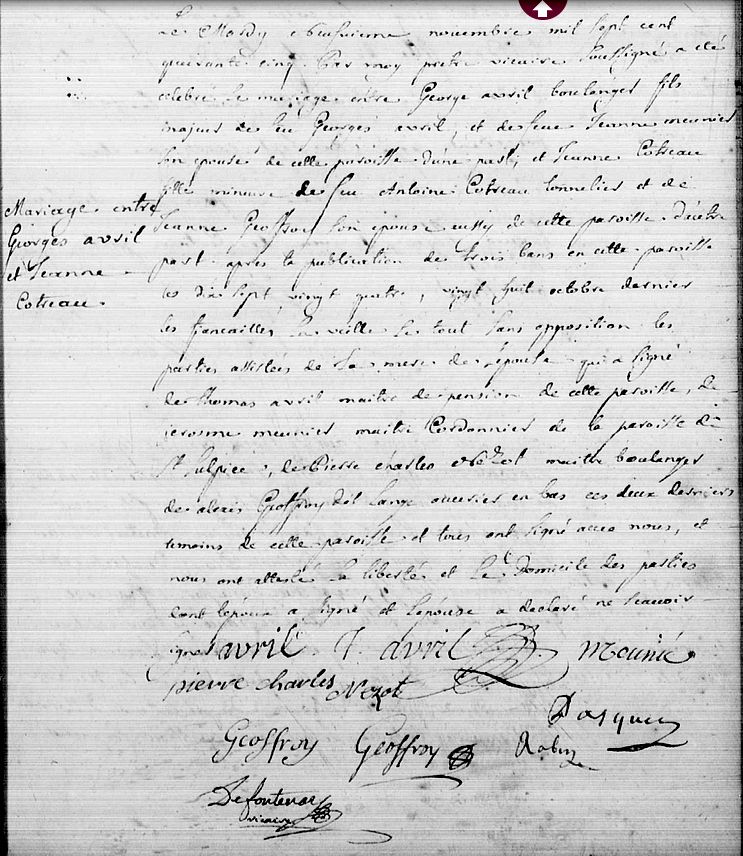 Mariage entre
Georges avril
et Jeanne
Cotreau.
Le Mardy neufvieme novembre mil sept cent
quarante cinq Par moy pretre vicaire Soussigné a eté
celebré le mariage entre George avril boulanger fils
majeur de feu Georges avril, et de feue Jeanne meunier
Son epouse de cette paroisse d'une part, et Jeanne Cotreau
fille mineure de feu Antoine Cotreau tonnelier et de
Jeanne Geoffroy Son epouse aussy de cette paroisse d'autre
part après la publication de trois bans en cette paroisse
les dix Sept, vingt quatre, vingt huit octobre dernier
les fiancailles la veille le tout Sans opposition les
parties assistées de la mere de l'epouse qui a Signé
de thomas avril maitre de pension de cette paroisse, de
jerosme meunier maitre Cordonnier de la paroisse de
St Sulpice, de Pierre charles Nezot maitre boulanger
de alexis Geoffroy dit Lange ouvrier en bas ces deux derniers
temoins de cette paroisse et tous ont Signé avec nous, et
nous ont attesté la liberté et le Domicile des parties
dont l'epoux a Signé et l'epouse a declaré ne Scavoir
Signer avril T avril meunié
pierre charles Nezot
Pasquier
Geoffroy Geoffroy Robin
Defontenay
vicaire